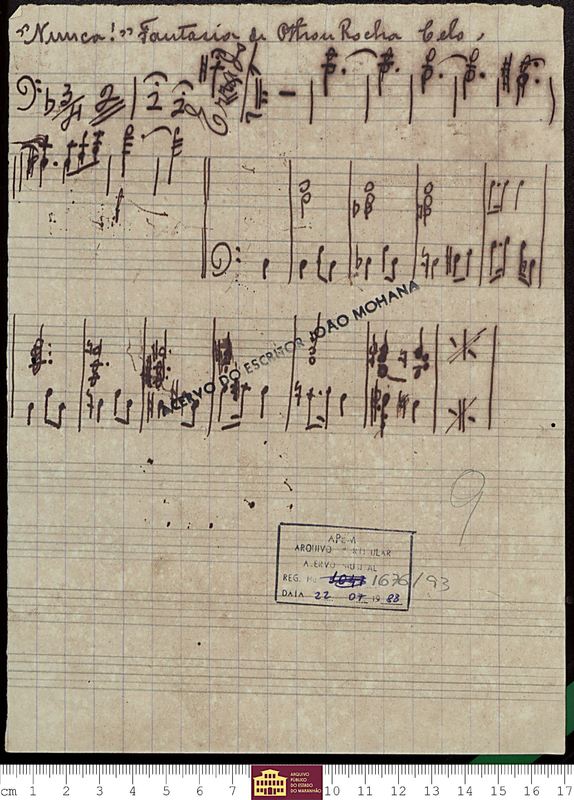 "Nunca!" Fantasia de Othon Rocha Celo.
ACERVO DO ESCRITOR JOÃO MOHANA
9
APEM
ARQUIVO PARTICULAR
ACERVO MUSICAL
REG. No 1676/93
DATA 22 07 1988
cm 1 2 3 4 5 6 7 10 11 12 13 14 15 16 17
ARQUIVO PÚBLICO DO ESTADO DO MARANHÃO